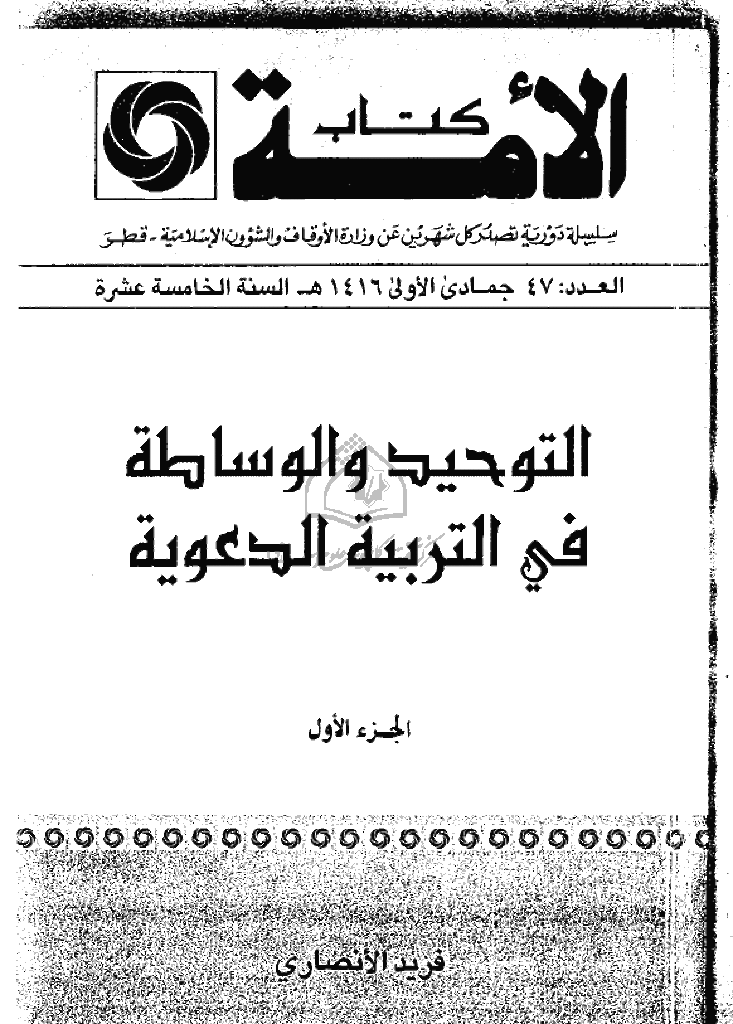 كتاب
الأمة
سلسلة دورية تصدر كل شهرين عن وزارة الأوقاف والشؤون الإسلامية - قطر
العدد: ٤٧ جمادى الأولى ١٤١٦ هـ السنة الخامسة عشرة
التوحيد والوساطة
في التربية الدعوية
الجزء الأول
فريد الأنصاري